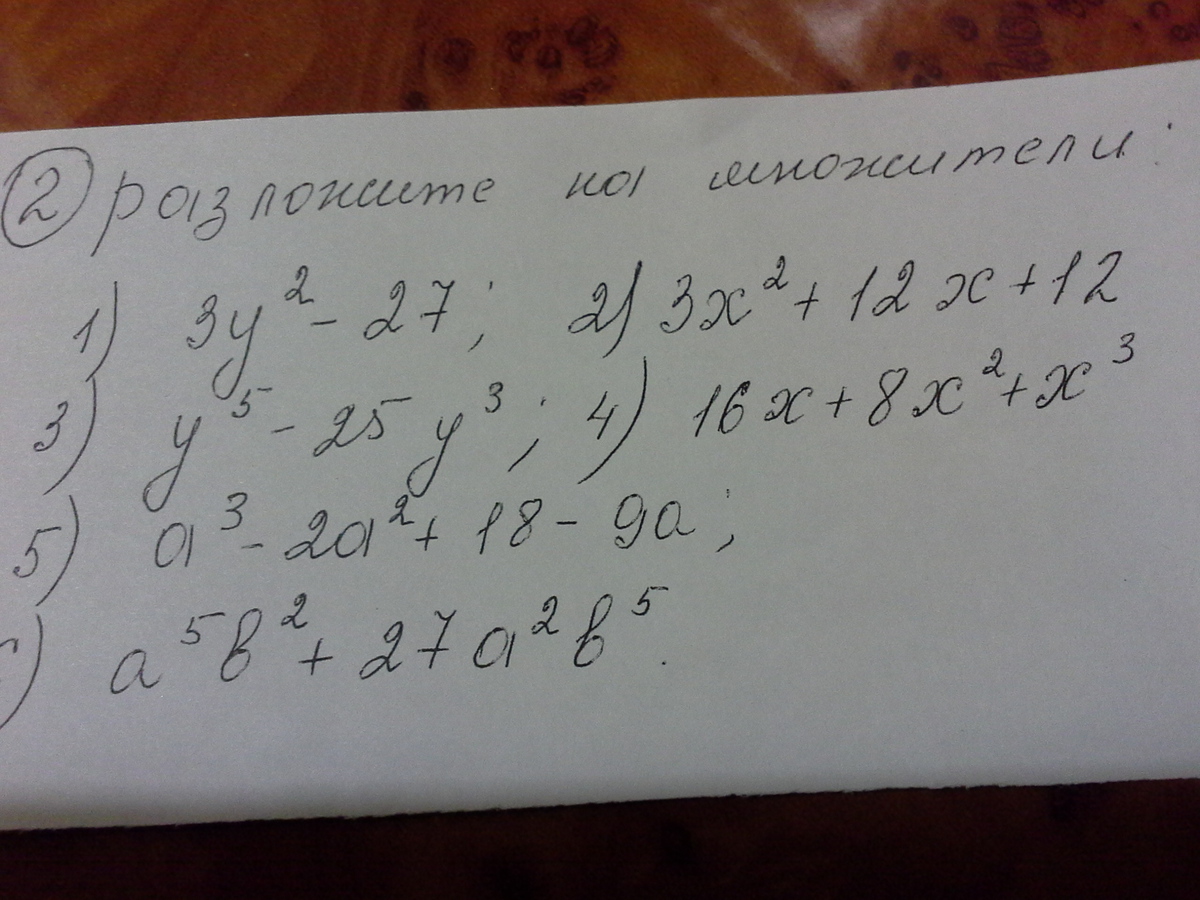 ② разложите на множители:
1) 3y² - 27; 2) 3x² + 12x + 12
3) y⁵ - 25y³; 4) 16x + 8x² + x³
5) a³ - 2a² + 18 - 9a;
) a⁵b² + 27a²b⁵.